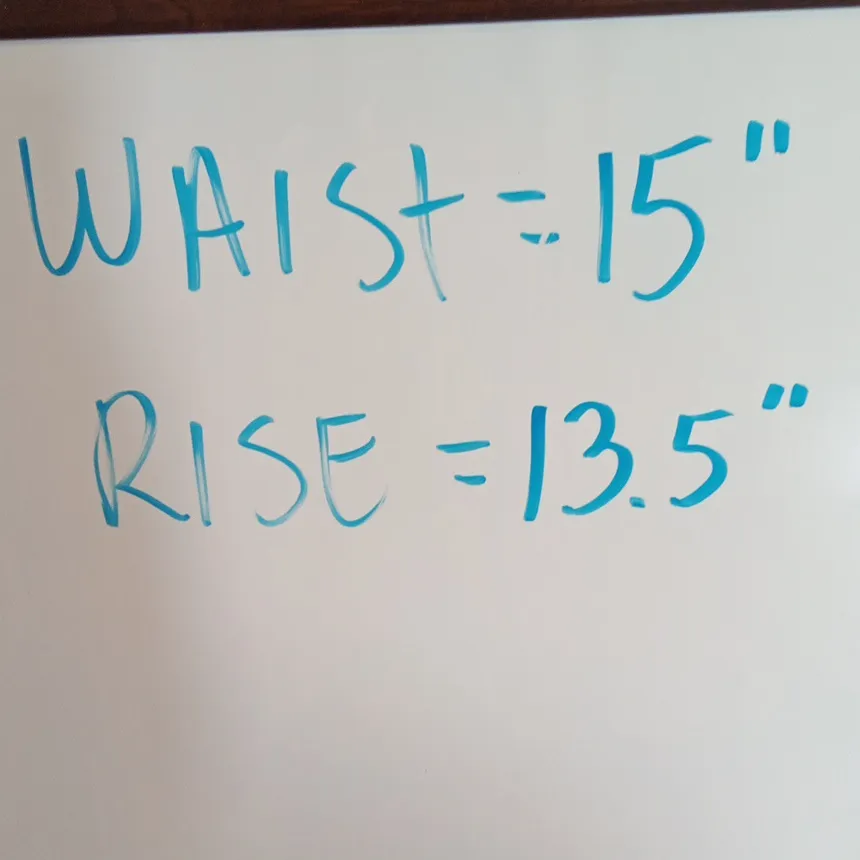 WAIST = 15"
RISE = 13.5"